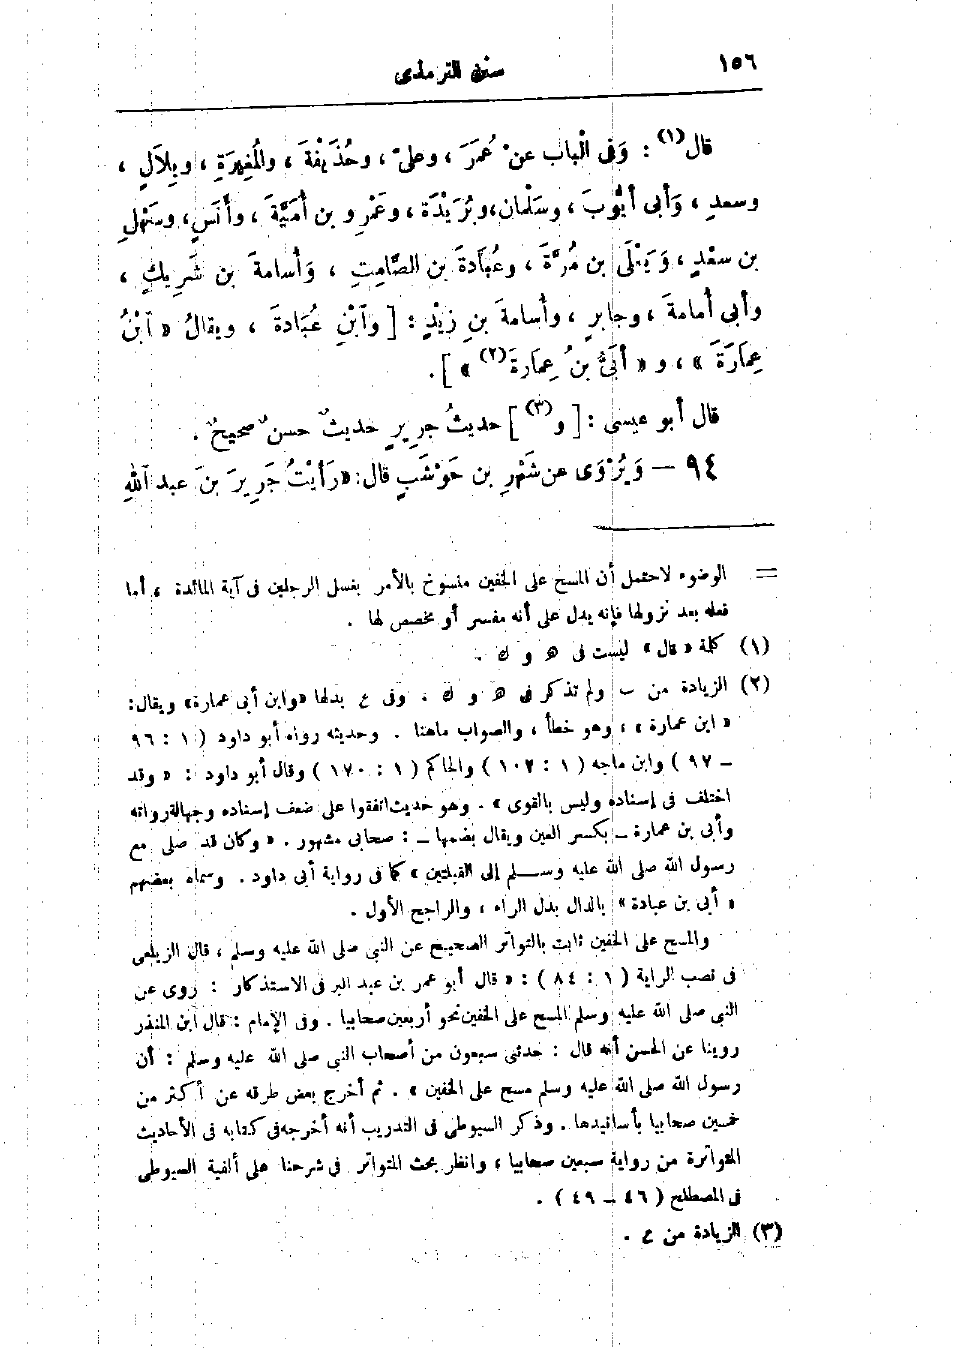 ١٥٦
سنن الترمذى
قال(١) : وَفى الْبابِ عنْ عُمَرَ ، وعلىّ ، وحُذَيْفَةَ ، والْمُغِيرَةِ ، وبِلاَلٍ ،
وسعدٍ ، وَأبى أيُّوبَ ، وسَلْمان، وبُرَيْدَةَ ، وعَمْرِو بن أُمَيَّةَ ، وأَنَسٍ، وسَهْلِ
بن سعْدٍ ، وَيَعْلَى بن مُرَّةَ ، وعُبَادةَ بن الصَّامِتِ ، وَأسامةَ بن شَرِيكٍ ،
وأبى أُمامةَ ، وجابرٍ ، وأُسامةَ بنِ زيْدٍ : [ وَٱبْنِ عُبَادةَ ، ويقالُ « ٱبْنُ
عِمَارَةَ » ، و « أُبَىُّ بنُ عِمَارةَ(٢) » ] .
قال أبو عيسى : [ و(٣) ] حديثُ جريرٍ حديثٌ حسنٌ صحيحٌ .
٩٤ — وَيُرْوَى عن شَهْرِ بن حَوْشَبٍ قال: « رَأيْتُ جَرِيرَ بنَ عبد ٱللهِ
= الوضوء لاحتمل أن المسح على الخفين منسوخ بالأمر بغسل الرجلين فى آية المائدة ، أما
فعله بعد نزولها فإنه يدل على أنه مفسر أو مخصص لها .
(١) كلمة « قال » ليست فى ه و ك .
(٢) الزيادة من ب ولم تذكر فى ه و ك . وفى ع بدلها « وابن أبى عمارة » ويقال:
« ابن عمارة » ، وهو خطأ ، والصواب ماهنا . وحديثه رواه أبو داود ( ١ : ٩٦
ــ ٩٧ ) وابن ماجه ( ١ : ١٠٢ ) والحاكم ( ١ : ١٧٠ ) وقال أبو داود : « وقد
اختلف فى إسناده وليس بالقوى » . وهو حديث اتفقوا على ضعف إسناده وجهالة رواته
وأبى بن عمارة ــ بكسر العين ويقال بضمها ــ : صحابى مشهور . « وكان قد صلى مع
رسول الله صلى الله عليه وسلم إلى القبلتين » كما فى رواية أبى داود . وسماه بعضهم
« أبى بن عبادة » بالدال بدل الراء ، والراجح الأول .
والمسح على الخفين ثابت بالتواتر الصحيح عن النبى صلى الله عليه وسلم ، قال الزيلعى
فى نصب الراية ( ١ : ٨٤ ) : « قال أبو عمر بن عبد البر فى الاستذكار : روى عن
النبى صلى الله عليه وسلم المسح على الخفين نحو أربعين صحابيا . وفى الإمام : قال ابن المنذر
روينا عن الحسن أنه قال : حدثنى سبعون من أصحاب النبى صلى الله عليه وسلم : أن
رسول الله صلى الله عليه وسلم مسح على الخفين » . ثم أخرج بعض طرقه عن أكثر من
خمسين صحابيا بأسانيدها . وذكر السيوطى فى التدريب أنه أخرجه فى كتابه فى الأحاديث
المتواترة من رواية سبعين صحابيا ، وانظر بحث المتواتر فى شرحنا على ألفية السيوطى
فى المصطلح ( ٤٦ ــ ٤٩ ) .
(٣) الزيادة من ع .